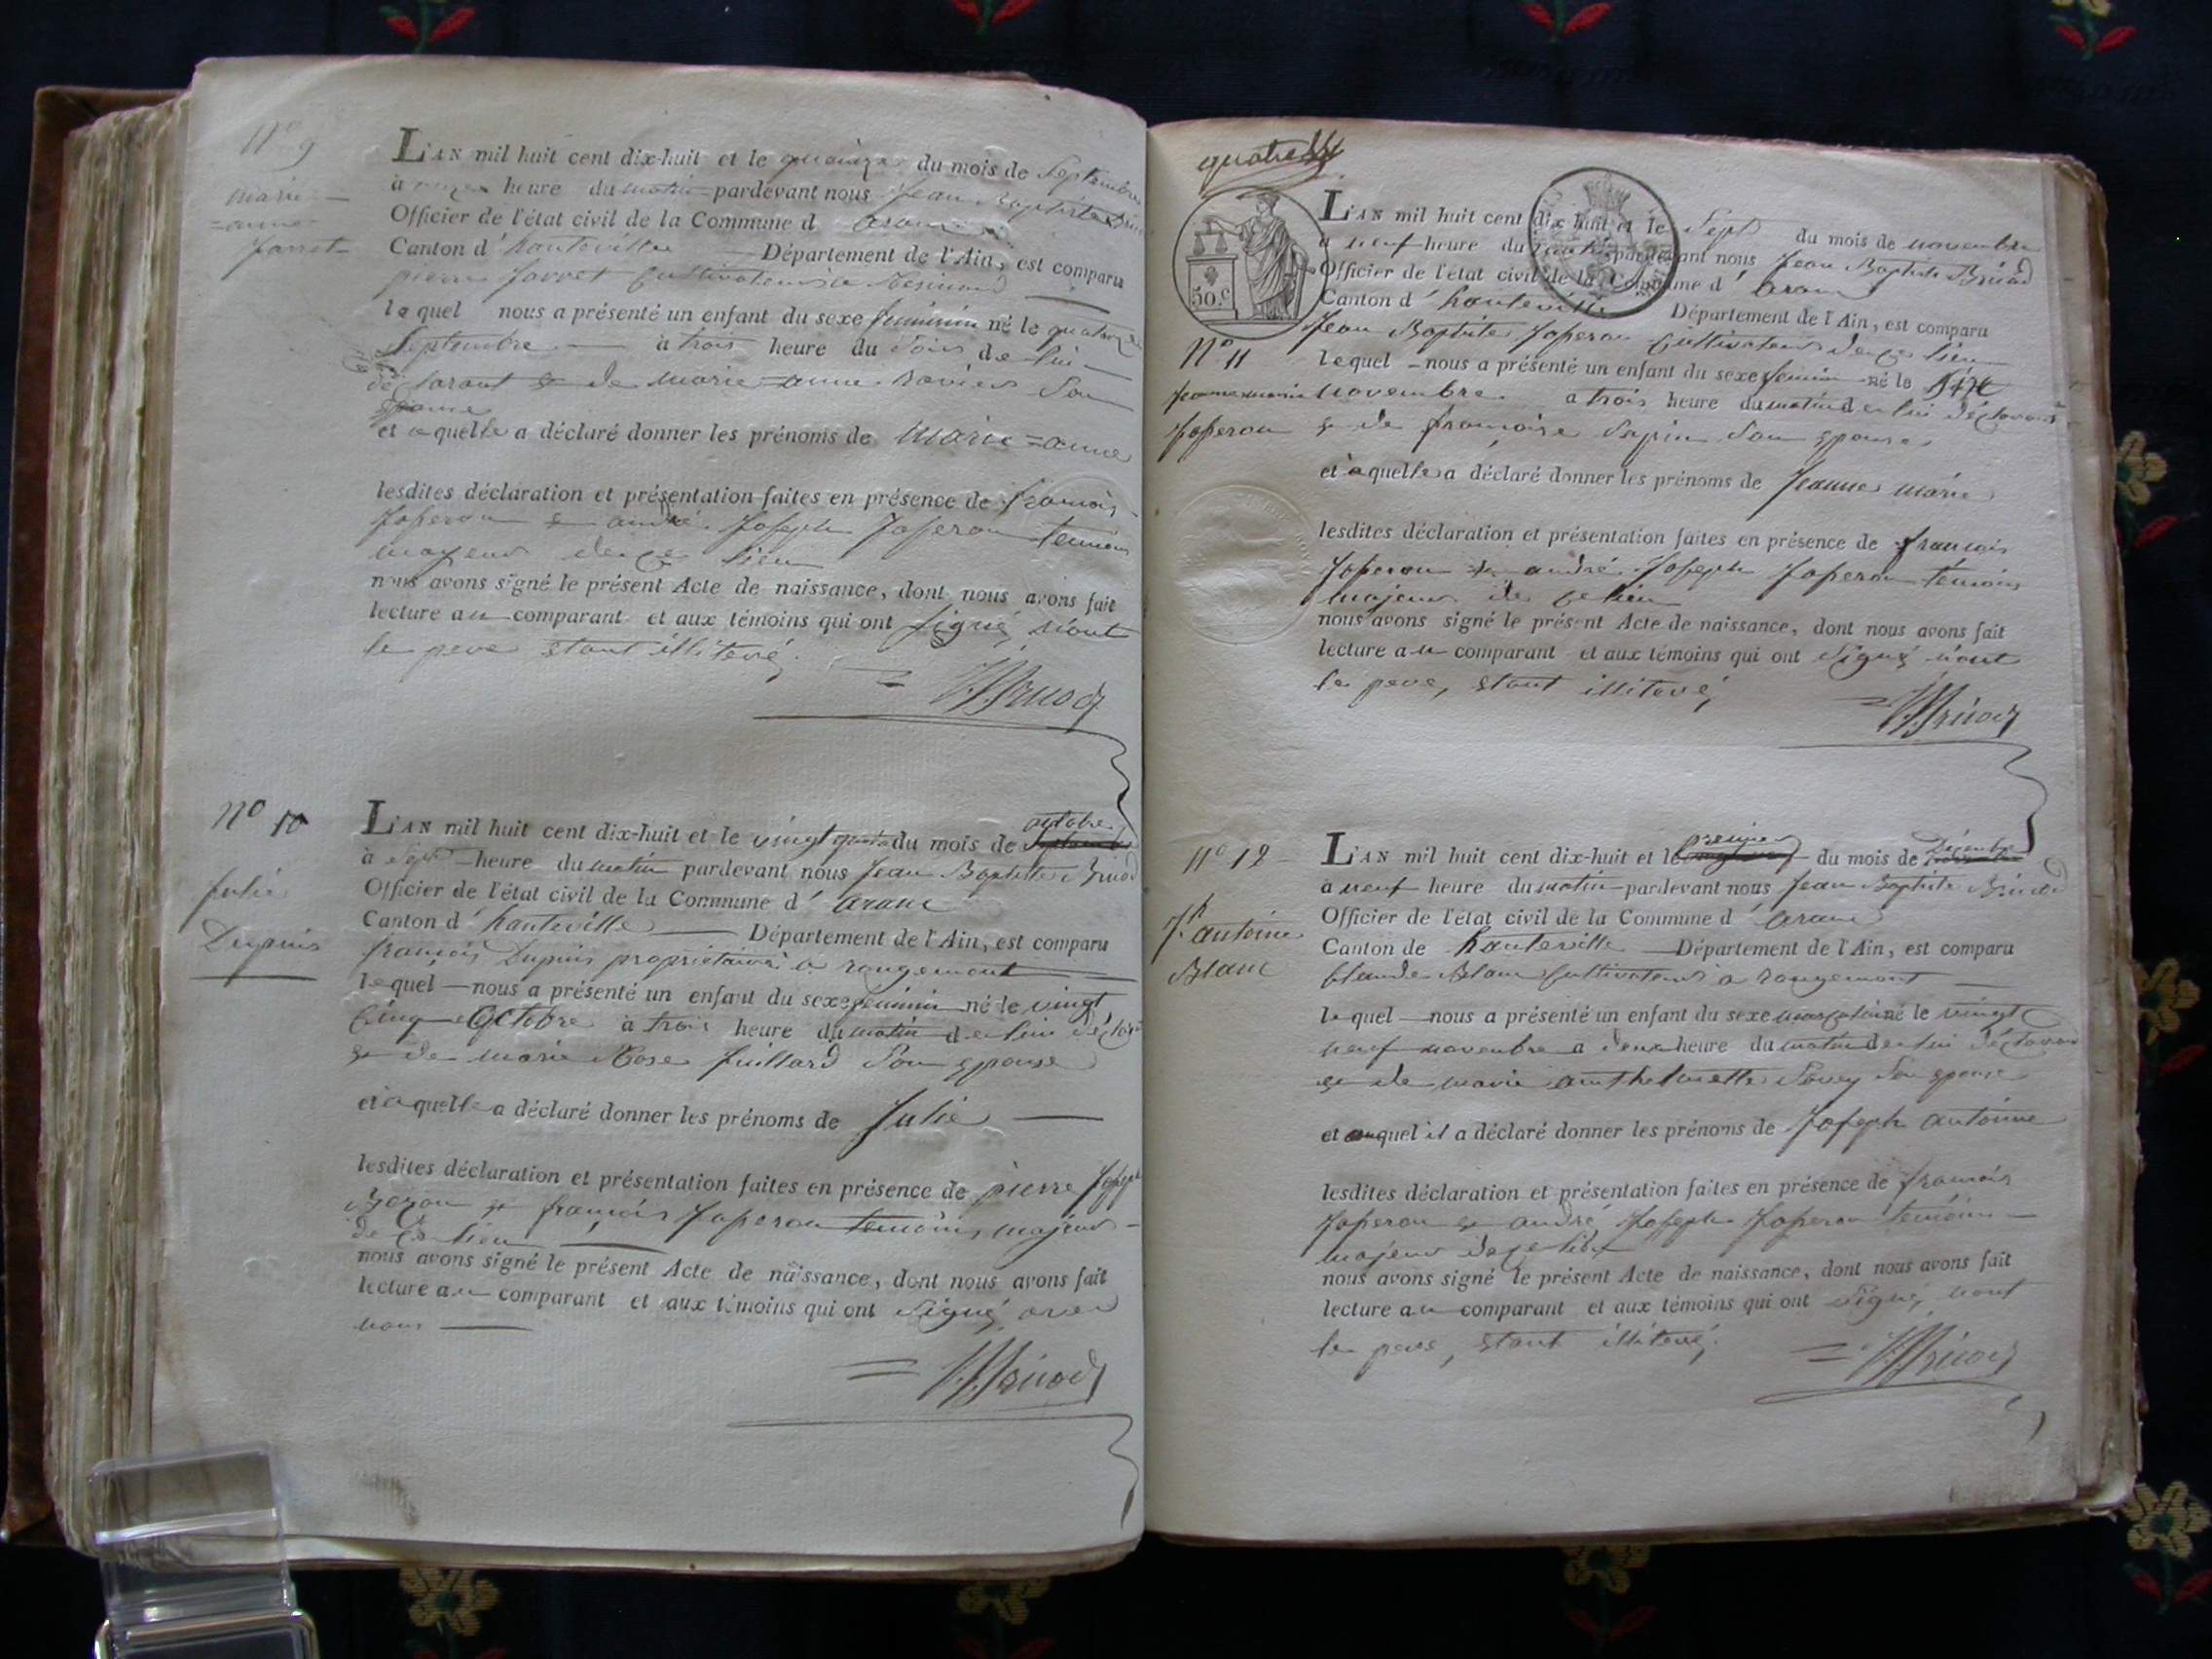 N° 9
marie
=anne
Jarret
L'AN mil huit cent dix-huit et le quainze du mois de Septembre
à onze heure du matin pardevant nous Jean Baptiste
Officier de l'état civil de la Commune d' aranc
Canton d' hauteville Département de l'Ain, est comparu
pierre Jarret Cultivateur à
lequel nous a présenté un enfant du sexe feminin né le quatorze
Septembre à trois heure du Soir de lui
déclarant & de marie anne Ravier Son
epouse
et a quelle a déclaré donner les prénoms de marie=anne
lesdites déclaration et présentation faites en présence de francois
Joseron & andré Joseph Joseron temoins
majeurs de ce lieu
nous avons signé le présent Acte de naissance, dont nous avons fait
lecture au comparant et aux témoins qui ont signé, n'ont
le pere etant illiteré.
N° 10
Julie
Dupuis
L'AN mil huit cent dix-huit et le vingt du mois de octobre
à heure du matin pardevant nous Jean Baptiste Brunod
Officier de l'état civil de la Commune d' aranc
Canton d' hauteville Département de l'Ain, est comparu
francois Dupuis proprietaire à rougemont
lequel nous a présenté un enfant du sexe feminin né le vingt
Cinq Octobre à trois heure du matin de lui
& de marie Rose Juillard Son epouse
et a quelle a déclaré donner les prénoms de Julie
lesdites déclaration et présentation faites en présence de pierre Joseph
& francois Joseron temoins majeurs
de ce lieu
nous avons signé le présent Acte de naissance, dont nous avons fait
lecture au comparant et aux témoins qui ont signé avec
nous
quatre
50.c
L'AN mil huit cent dix huit et le Sept du mois de novembre
à neuf heure du matin pardevant nous Jean Baptiste
Officier de l'état civil de la Commune d' aranc
Canton d' hauteville Département de l'Ain, est comparu
Jean Baptiste Joseron Cultivateur de ce lieu
N° 11
Jeanne marie
Joseron
lequel nous a présenté un enfant du sexe feminin né le
novembre a trois heure du matin de lui déclarant
& de francoise Sapin Son epouse
et a quelle a déclaré donner les prénoms de Jeanne marie
lesdites déclaration et présentation faites en présence de francois
Joseron & andré Joseph Joseron temoins
majeurs de ce lieu
nous avons signé le présent Acte de naissance, dont nous avons fait
lecture au comparant et aux témoins qui ont signé n'ont
le pere, etant illiteré,
N° 12
Jh antoine
Blanc
L'AN mil huit cent dix-huit et le premier du mois de Décembre
à neuf heure du matin pardevant nous Jean Baptiste
Officier de l'état civil de la Commune d' aranc
Canton de hauteville Département de l'Ain, est comparu
Claude Blanc Cultivateur à rougemont
lequel nous a présenté un enfant du sexe masculin né le vingt
neuf novembre a deux heure du matin de lui déclarant
& de marie anthelmette Son epouse
et auquel il a déclaré donner les prénoms de Joseph antoine
lesdites déclaration et présentation faites en présence de francois
Joseron & andré Joseph Joseron temoins
majeurs de ce lieu
nous avons signé le présent Acte de naissance, dont nous avons fait
lecture au comparant et aux témoins qui ont signé, n'ont
le pere, etant illiteré.